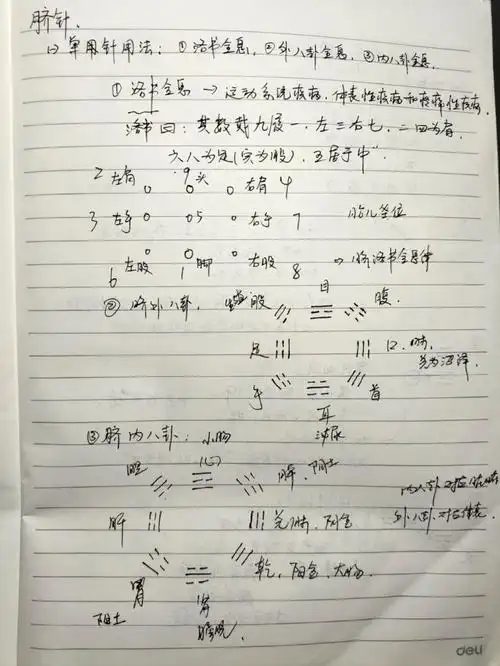 脐针.
(1) 单用针用法: ①洛书全息, ②外八卦全息, ③内八卦全息.
① 洛书全息 → 运动系统疾病, 体表性疾病和疼痛性疾病
洛书曰: 其数戴九履一, 左三右七, 二四为肩,
六八为足(实为股), 五居于中"
2 左肩 9头 右肩 4
0 0 0
3 左手 0 05 0 右手 7 胎儿坐位
0 0 0
6 左股 1 脚 右股 8 → 脐洛书全息体
② 脐外八卦, 股 目 腹.
足 口.
手 耳 首
泌尿
③ 脐内八卦: 小肠
胆 (心) 脾, 阴土
肝 兑肺, 阴金
内八卦对应
外八卦对应体表
胃 肾 乾, 阳金, 大肠.
阳土 膀胱,
deli